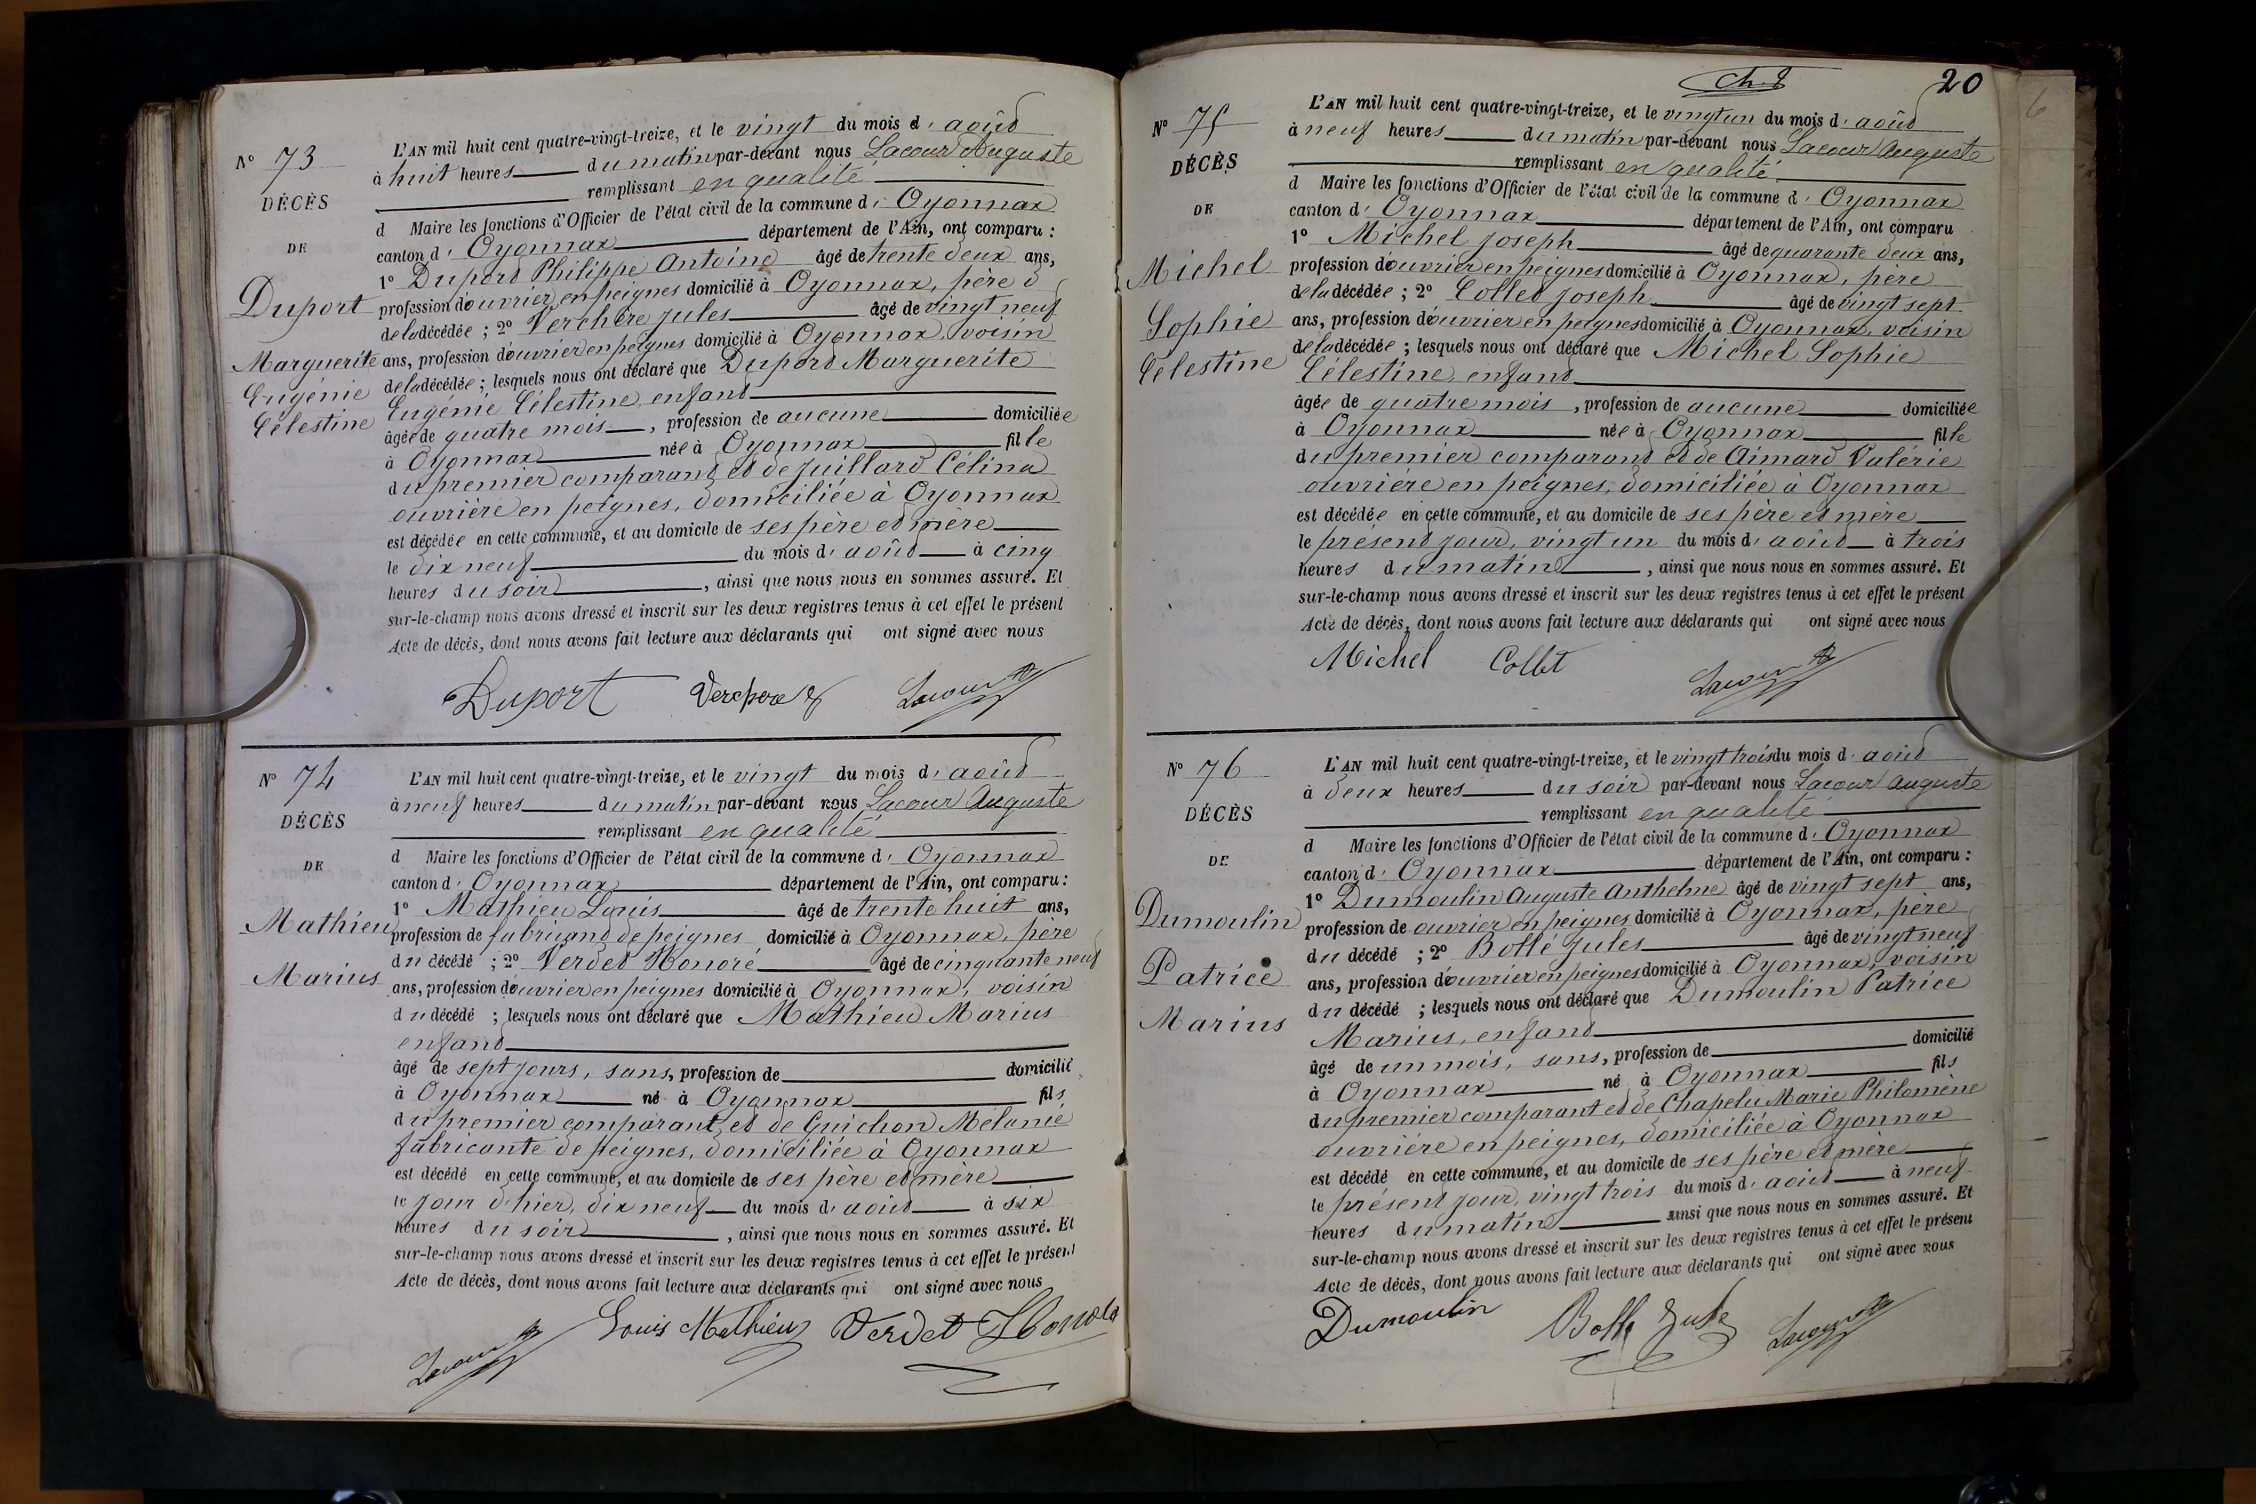 N° 73
DÉCÈS
DE
Duport
Marguerite
Eugénie
Célestine
L'AN mil huit cent quatre-vingt-treize, et le vingt du mois d' août
à huit heures du matin par-devant nous Lacour Auguste
remplissant en qualité
d Maire les fonctions d'Officier de l'état civil de la commune d' Oyonnax
canton d' Oyonnax département de l'Ain, ont comparu :
1° Duport Philippe Antoine âgé de trente deux ans,
profession d'ouvrier en peignes domicilié à Oyonnax, père d
de la décédée ; 2° Verchère Jules âgé de vingt neuf
ans, profession d'ouvrier en peignes domicilié à Oyonnax, voisin
de la décédée ; lesquels nous ont déclaré que Duport Marguerite
Eugénie Célestine, enfant
âgée de quatre mois, profession de aucune domiciliée
à Oyonnax née à Oyonnax fille
du premier comparant et de Juillard Célina
ouvrière en peignes, domiciliée à Oyonnax
est décédée en cette commune, et au domicile de ses père et mère
le dix neuf du mois d' août à cinq
heures du soir, ainsi que nous nous en sommes assuré. Et
sur-le-champ nous avons dressé et inscrit sur les deux registres tenus à cet effet le présent
Acte de décès, dont nous avons fait lecture aux déclarants qui ont signé avec nous
Duport Verchere Lacour
N° 74
DÉCÈS
DE
Mathieu
Marius
L'AN mil huit cent quatre-vingt-treize, et le vingt du mois d' août
à neuf heures du matin par-devant nous Lacour Auguste
remplissant en qualité
d Maire les fonctions d'Officier de l'état civil de la commune d' Oyonnax
canton d' Oyonnax département de l'Ain, ont comparu :
1° Mathieu Louis âgé de trente huit ans,
profession de fabricant de peignes domicilié à Oyonnax, père
du décédé ; 2° Verdet Honoré âgé de cinquante neuf
ans, profession d'ouvrier en peignes domicilié à Oyonnax, voisin
du décédé ; lesquels nous ont déclaré que Mathieu Marius
enfant
âgé de sept jours, sans, profession de domicilié
à Oyonnax né à Oyonnax fils
du premier comparant et de Guichon Mélanie
fabricante de peignes, domiciliée à Oyonnax
est décédé en cette commune, et au domicile de ses père et mère
le jour d'hier, dix neuf du mois d' août à six
heures du soir, ainsi que nous nous en sommes assuré. Et
sur-le-champ nous avons dressé et inscrit sur les deux registres tenus à cet effet le présent
Acte de décès, dont nous avons fait lecture aux déclarants qui ont signé avec nous
Lacour Louis Mathieu Verdet Honoré
20
N° 75
DÉCÈS
DE
Michel
Sophie
Célestine
L'AN mil huit cent quatre-vingt-treize, et le vingt un du mois d' août
à neuf heures du matin par-devant nous Lacour Auguste
remplissant en qualité
d Maire les fonctions d'Officier de l'état civil de la commune d' Oyonnax
canton d' Oyonnax département de l'Ain, ont comparu
1° Michel Joseph âgé de quarante deux ans,
profession d'ouvrier en peignes domicilié à Oyonnax, père
de la décédée ; 2° Collet Joseph âgé de vingt sept
ans, profession d'ouvrier en peignes domicilié à Oyonnax, voisin
de la décédée ; lesquels nous ont déclaré que Michel Sophie
Célestine, enfant
âgée de quatre mois, profession de aucune domiciliée
à Oyonnax née à Oyonnax fille
du premier comparant et de Aimard Valérie
ouvrière en peignes, domiciliée à Oyonnax
est décédée en cette commune, et au domicile de ses père et mère
le présent jour, vingt un du mois d' août à trois
heures du matin, ainsi que nous nous en sommes assuré. Et
sur-le-champ nous avons dressé et inscrit sur les deux registres tenus à cet effet le présent
Acte de décès, dont nous avons fait lecture aux déclarants qui ont signé avec nous
Michel Collet Lacour
N° 76
DÉCÈS
DE
Dumoulin
Patrice
Marius
L'AN mil huit cent quatre-vingt-treize, et le vingt trois du mois d' août
à deux heures du soir par-devant nous Lacour Auguste
remplissant en qualité
d Maire les fonctions d'Officier de l'état civil de la commune d' Oyonnax
canton d' Oyonnax département de l'Ain, ont comparu :
1° Dumoulin Auguste Anthelme âgé de vingt sept ans,
profession de ouvrier en peignes domicilié à Oyonnax, père
du décédé ; 2° Bollé Jules âgé de vingt neuf
ans, profession d'ouvrier en peignes domicilié à Oyonnax, voisin
du décédé ; lesquels nous ont déclaré que Dumoulin Patrice
Marius, enfant
âgé de un mois, sans, profession de domicilié
à Oyonnax né à Oyonnax fils
du premier comparant et de Chapelu Marie Philomène
ouvrière en peignes, domiciliée à Oyonnax
est décédé en cette commune, et au domicile de ses père et mère
le présent jour, vingt trois du mois d' août à neuf
heures du matin ainsi que nous nous en sommes assuré. Et
sur-le-champ nous avons dressé et inscrit sur les deux registres tenus à cet effet le présent
Acte de décès, dont nous avons fait lecture aux déclarants qui ont signé avec nous
Dumoulin Bolle Jule Lacour
6